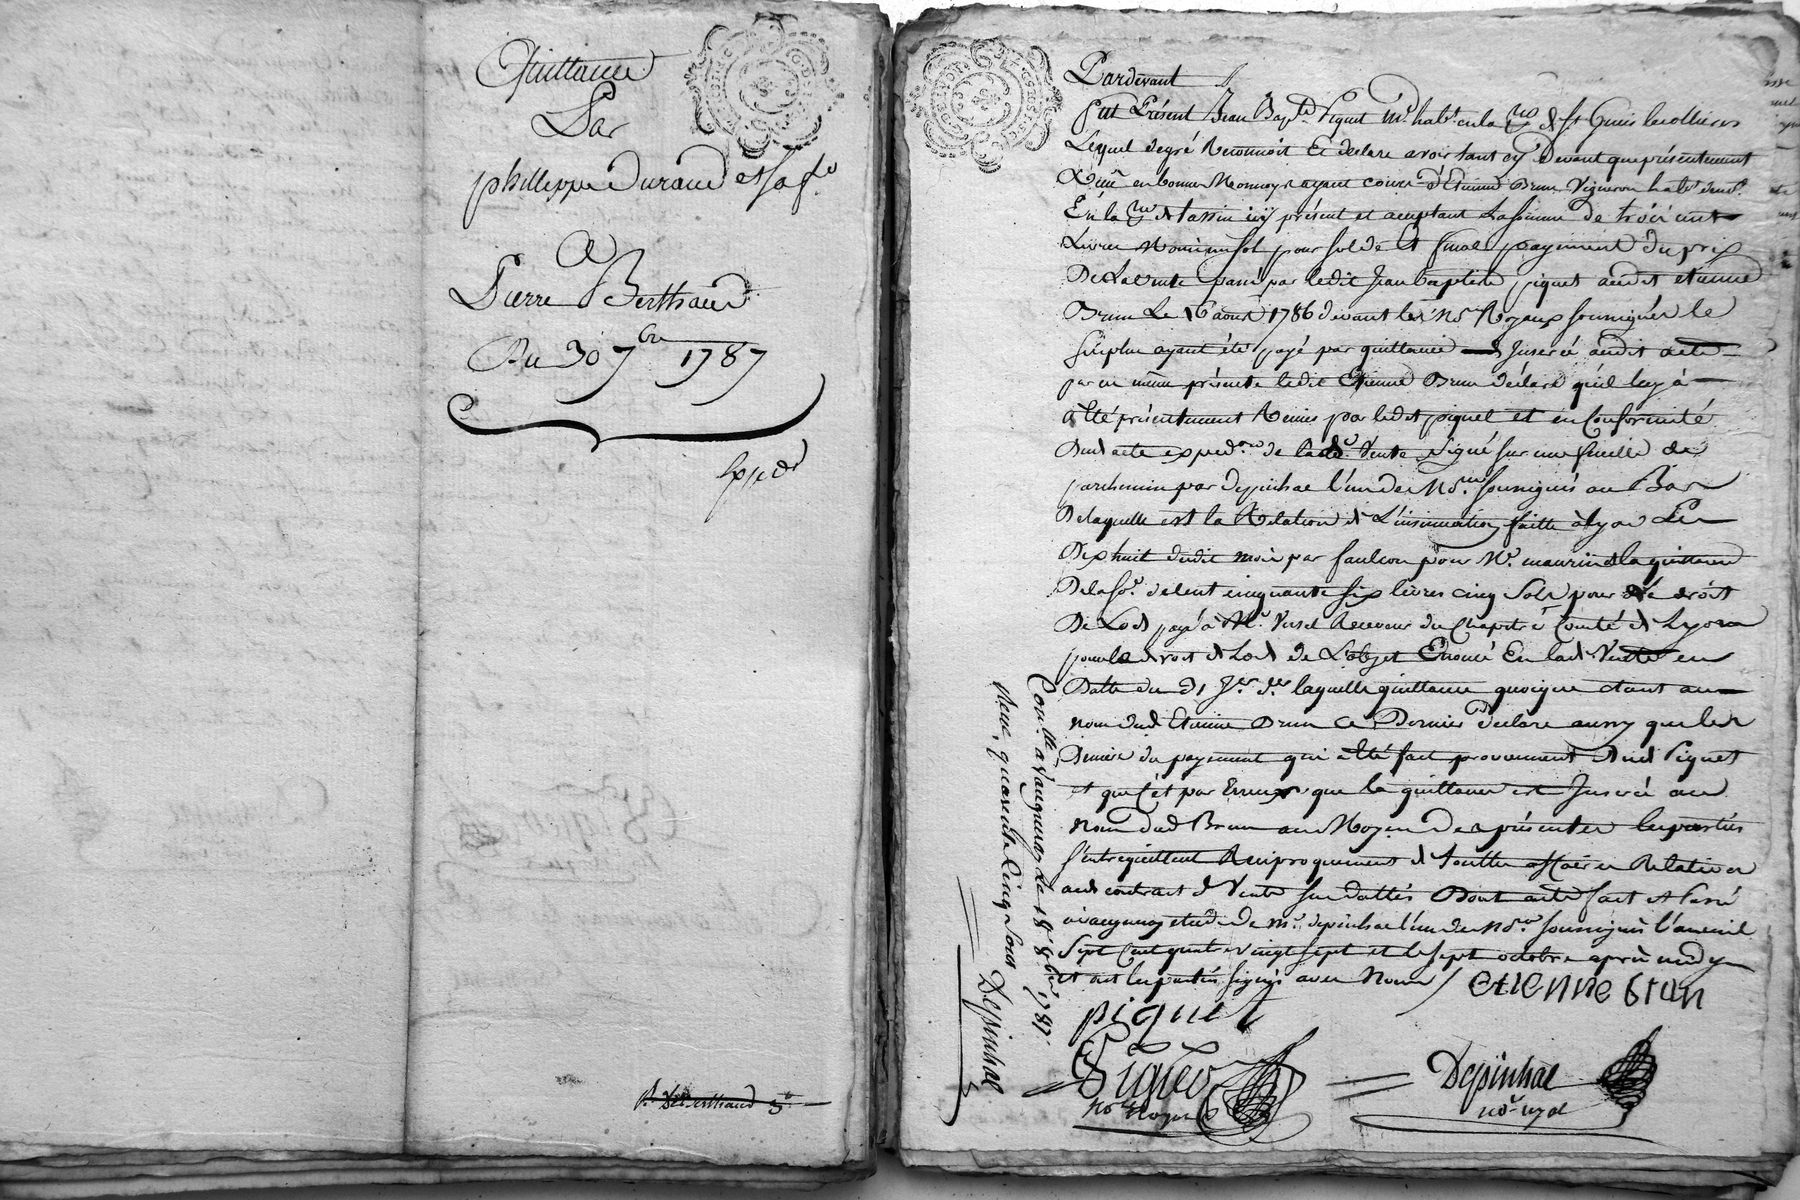 Quittance
Par
philleppe durand et sa fe
A
Pierre Berthaud
Du 30 7bre 1787
Exp dé
Pardevant
fut Présent Jean Bapte Piquet Md habt en la de St Genis les ollieres
Lequel de gré Reconnoit Et declare avoir tant cy devant que présentement
en bonne Monnoye ayant cours d'Etienne Brun Vigneron habt
En la de tassin icy présent et acceptant La somme de trois cent
Livres sol pour solde Et final payement du prix
De La vente passé par ledit Jean baptiste piquet audit etienne
Brun Le 6 aoust 1786 devant les Nres Royaux soussignés le
surplus ayant été payé par quittance Inserée audit acte
par ces même présente ledit Etienne Brun déclare qu'il luy à
été présentement Remis par ledit piquet et en Conformité
Dud acte expedon de lade Vente signé sur une feuille de
parchemin par depinhac l'un des Nres soussignés au Bas
De laquelle est la Relation de L'insinuation faitte à lyon Le
Dix huit dudit mois par faulcon pour Mr maurin & la quittance
De la so. de Cent cinquante six livres cinq sols pour le droit
De Lods payé à Mr Receveur du Chapitre Comté de Lyon
pour le droit de Lods de L'objet Enoncé En lad. Vente en
Datte du 31 Jer der laquelle quittance quoique étant au
nom dud Etienne Brun Ce Dernier declare aussy que les
Deniers du payement qui a été fait provenment dud Piquet
et que C'est par Erreur que la quittance est Inserée au
Nom dud Brun au Moyen des présentes les parties
s'entrequittent Reciproquement de touttes affaires Relatives
aud contract de Vente sus dattés Dont acte fait et Passé
à vaugneray etude de Me depinhac l'un des Nres soussignés l'an mil
Sept Cent quatre vingt sept et le sept octobre après midy
et ont les parties signés avec Nous / etienne brun
piquet
Depinhac
nore Royal
nore ryal
Conlle à Vaugneray Le 18 8bre 1787
Reçu quarante Cinq Sous Depinhac